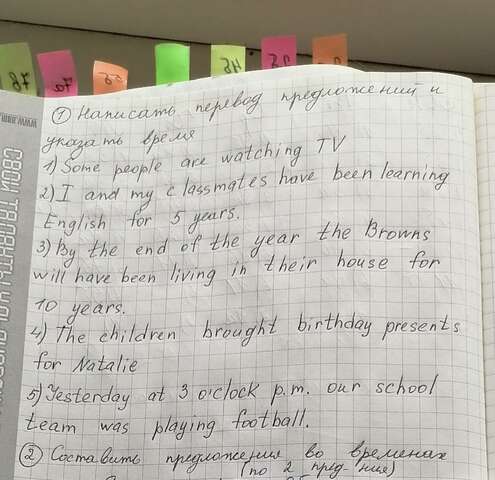 ① Написать перевод предложений и
указать время
1) Some people are watching TV
2) I and my classmates have been learning
English for 5 years.
3) By the end of the year the Browns
will have been living in their house for
10 years.
4) The children brought birthday presents
for Natalie
5) Yesterday at 3 o'clock p.m. our school
team was playing football.
② Составить предложения во временах
(по 2 предл-ния)